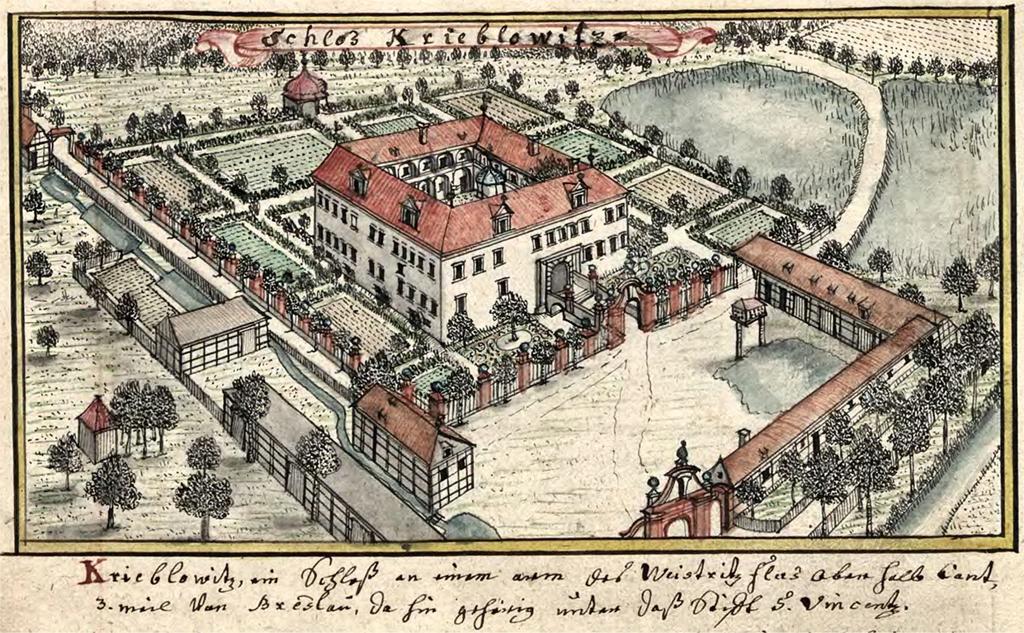 Schloß Krieblowitz
Krieblowitz, ein Schloß an einem arm des Weistritz fluß oben halb Cant,
3. meil von Breslau, da hin gehörig unter daß Stift S. Vincentz.